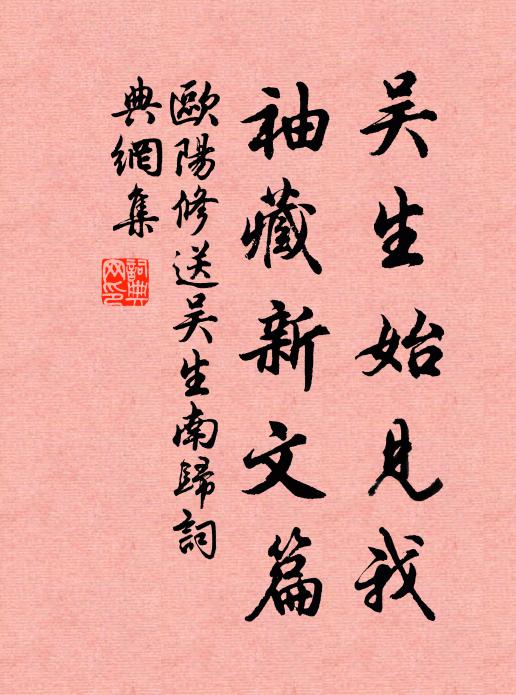 吴生始見我
袖藏新文篇
歐陽修送吴生南歸詞
典網集
詞典
网印